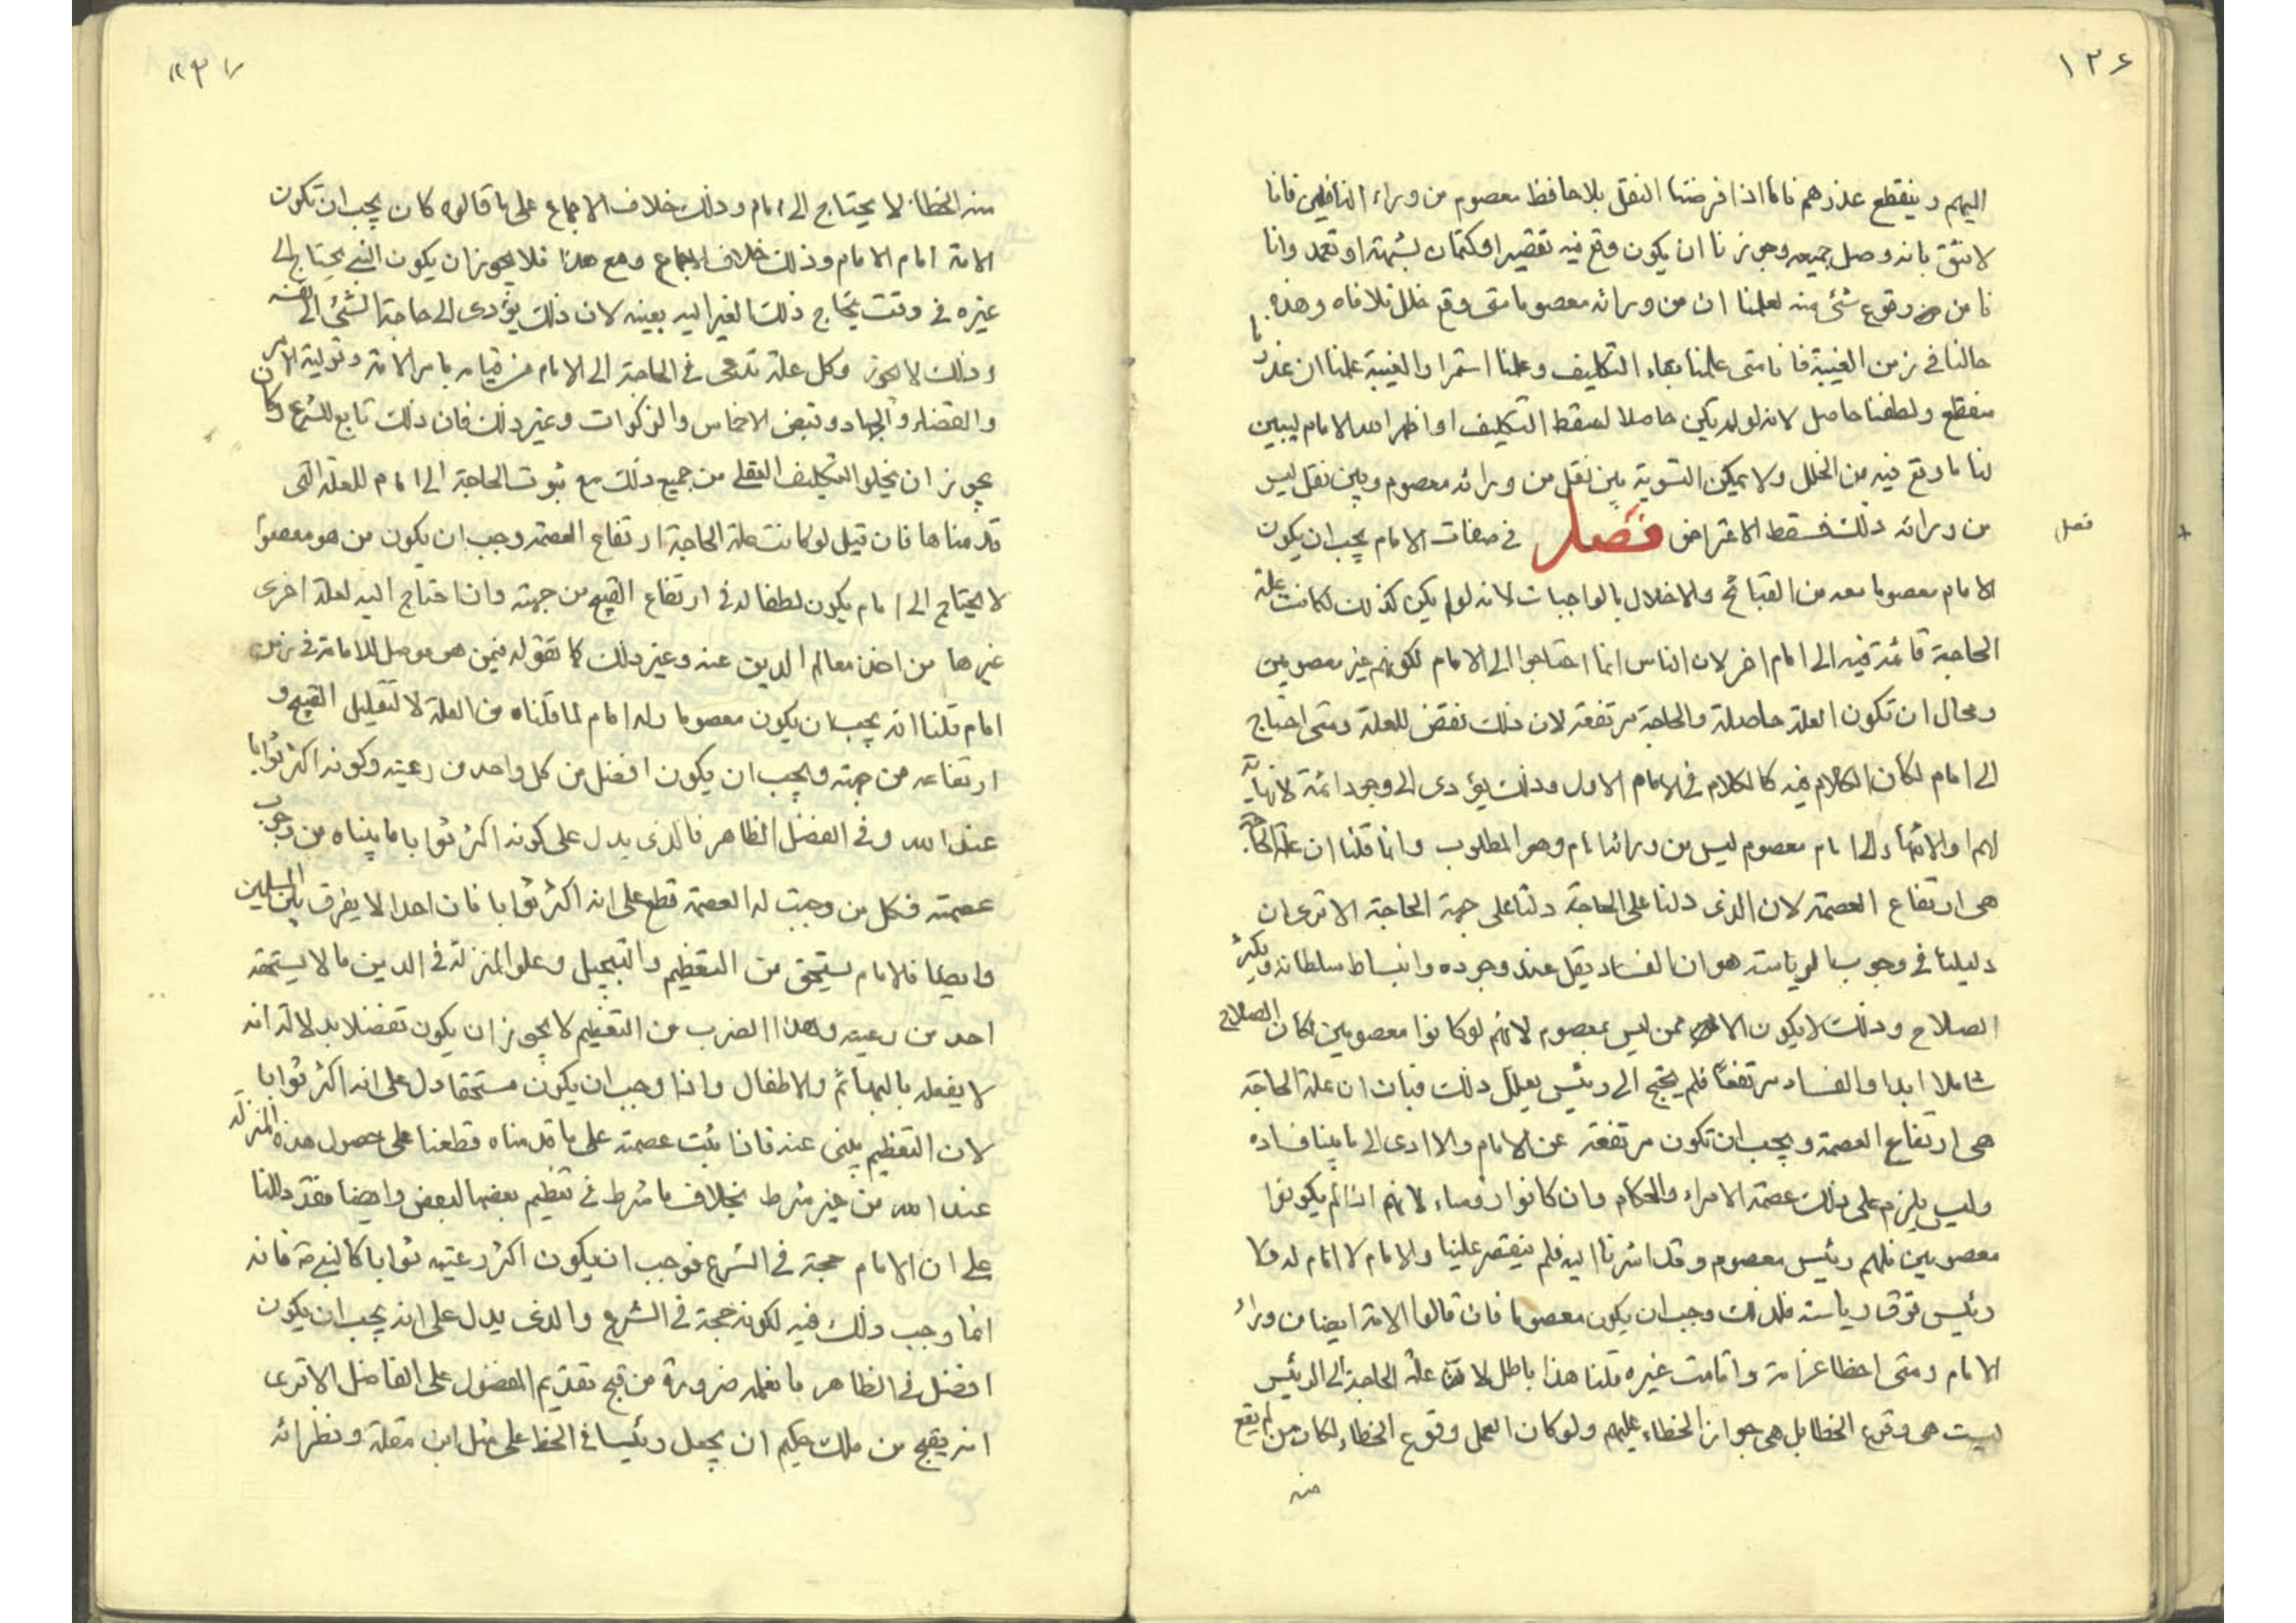 ١٣٦
اليهم وينقطع عذرهم فاما اذا فرضنا النقل بلا حافظ معصوم من وراء الناقلين فانا
لانثق بانه وصل جميعه وجوزنا ان يكون وقع فيه تقصير او كتمان لشبهة او تعمد وانا
نامن من وقوع شئ منه لعلمنا ان من ورائه معصوما متى وقع خلل تلافاه وهذه
حالنا في زمن الغيبة فانا متى علمنا بقاء التكليف وعلمنا استمرار الغيبة علمنا ان عذرنا
منقطع ولطفنا حاصل لانه لو لم يكن حاصلا لسقط التكليف او اظهر الله الامام ليبين
لنا ما وقع فيه من الخلل ولا يمكن التسوية بين نقل من ورائه معصوم وبين نقل ليس
من ورائه ذلك فسقط الاعتراض فصل في صفات الامام يجب ان يكون
فصل
الامام معصوما من القبائح والاخلال بالواجبات لانه لو لم يكن كذلك لكانت علة
الحاجة قائمة فيه الى امام اخر لان الناس انما احتاجوا الى الامام لكونهم غير معصومين
ومحال ان تكون العلة حاصلة والحاجة مرتفعة لان ذلك نقض للعلة ومتى احتاج
الى امام لكان الكلام فيه كالكلام في الامام الاول وذلك يؤدى الى وجود ائمة لا نهاية
لهم او الانتهاء الى امام معصوم ليس من ورائه امام وهو المطلوب وانما قلنا ان علة الحاجة
هى ارتفاع العصمة لان الذى دلنا على الحاجة دلنا على جهة الحاجة الا ترى ان
دليلنا في وجوب الرياسة هو ان الفساد يقل عند وجوده وانبساط سلطانه ويكثر
الصلاح وذلك لا يكون الا ممن ليس بمعصوم لانهم لو كانوا معصومين لكان الصلاح
شاملا ابدا والفساد مرتفعاً فلم يحتج الى رئيس يعلل ذلك فبان ان علة الحاجة
هى ارتفاع العصمة ويجب ان تكون مرتفعة عن الامام والا ادى الى ما بينا فساده
وليس يلزم على ذلك عصمة الامراء والحكام وان كانوا رؤساء لانهم اذا لم يكونوا
معصومين فلهم رئيس معصوم وقد اشرنا اليه فلم ينتقض علينا والامام لا امام له ولا
رئيس فوق رياسته فلذلك وجب ان يكون معصوما فان قالوا الامة ايضا من وراء
الامام ومتى اخطا عزلته واقامت غيره قلنا هذا باطل لان علة الحاجة الى الرئيس
ليست هى وقوع الخطا بل هى جواز الخطاء عليهم ولو كان العمل وقوع الخطاء لكان من لم يقع
منه
١٣٧
منه الخطا لا يحتاج الى امام وذلك خلاف الاجماع على ما قالوه كان يجب ان تكون
الامة امام الامام وذلك خلاف الاجماع ومع هذا فلا يجوز ان يكون الشئ يحتاج الى
غيره في وقت يحتاج ذلك الغير اليه بعينه لان ذلك يؤدى الى حاجة الشئ الى نفسه
وذلك لا يجوز وكل علة تدعى في الحاجة الى الامام من قيامه بامر الامة وتولية الامر
والقضاء والجهاد وقبض الاخماس والزكوات وغير ذلك فان ذلك تابع للشرع وكان
يجوز ان يخلو التكليف العقلى من جميع ذلك مع ثبوت الحاجة الى امام للعلة التى
قدمناها فان قيل لو كانت علة الحاجة ارتفاع العصمة وجب ان يكون من هو معصوما
لا يحتاج الى امام يكون لطفا له في ارتفاع القبيح من جهته وانما احتاج اليه لعلة اخرى
غيرها من اخذ معالم الدين عنه وغير ذلك كما نقوله فيمن هو موصل للامامة في زمن
امام قلنا انه يجب ان يكون معصوما وله امام لما قلناه من العلة لا لتقليل القبيح و
ارتفاعه من جهته ويجب ان يكون افضل من كل واحد من رعيته وكونه اكثر ثوابا
عند الله وفي الفضل الظاهر فالذى يدل على كونه اكثر ثوابا ما بيناه من وجوب
عصمته فكل من وجبت له العصمة قطع على انه اكثر ثوابا فان احدا لا يفرق بين المسلمين
وايضا فالامام يستحق من التعظيم والتبجيل وعلو المنزلة في الدين ما لا يستحقه
احد من رعيته وهذا الضرب من التعظيم لا يجوز ان يكون تفضلا بدلالة انه
لا يفعله بالبهائم والاطفال واذا وجب ان يكون مستحقا دل على انه اكثر ثوابا
لان التعظيم ينبى عنه فاذا ثبت عصمته على ما قدمناه قطعنا على حصول هذه المنزلة
عند الله من غير شرط بخلاف ما شرط في تعظيم بعضها لبعض وايضا فقد دللنا
على ان الامام حجة في الشرع فوجب ان يكون اكثر رعيته ثوابا كالنبى ص فانه
انما وجب ذلك فيه لكونه حجة في الشرع والذى يدل على انه يجب ان يكون
افضل في الظاهر ما نعلمه ضرورة من قبح تقديم المفضول على الفاضل الا ترى
انه يقبح من ملك حكيم ان يجعل رئيسا في الخط على مثل ابن مقلة ونظرائه